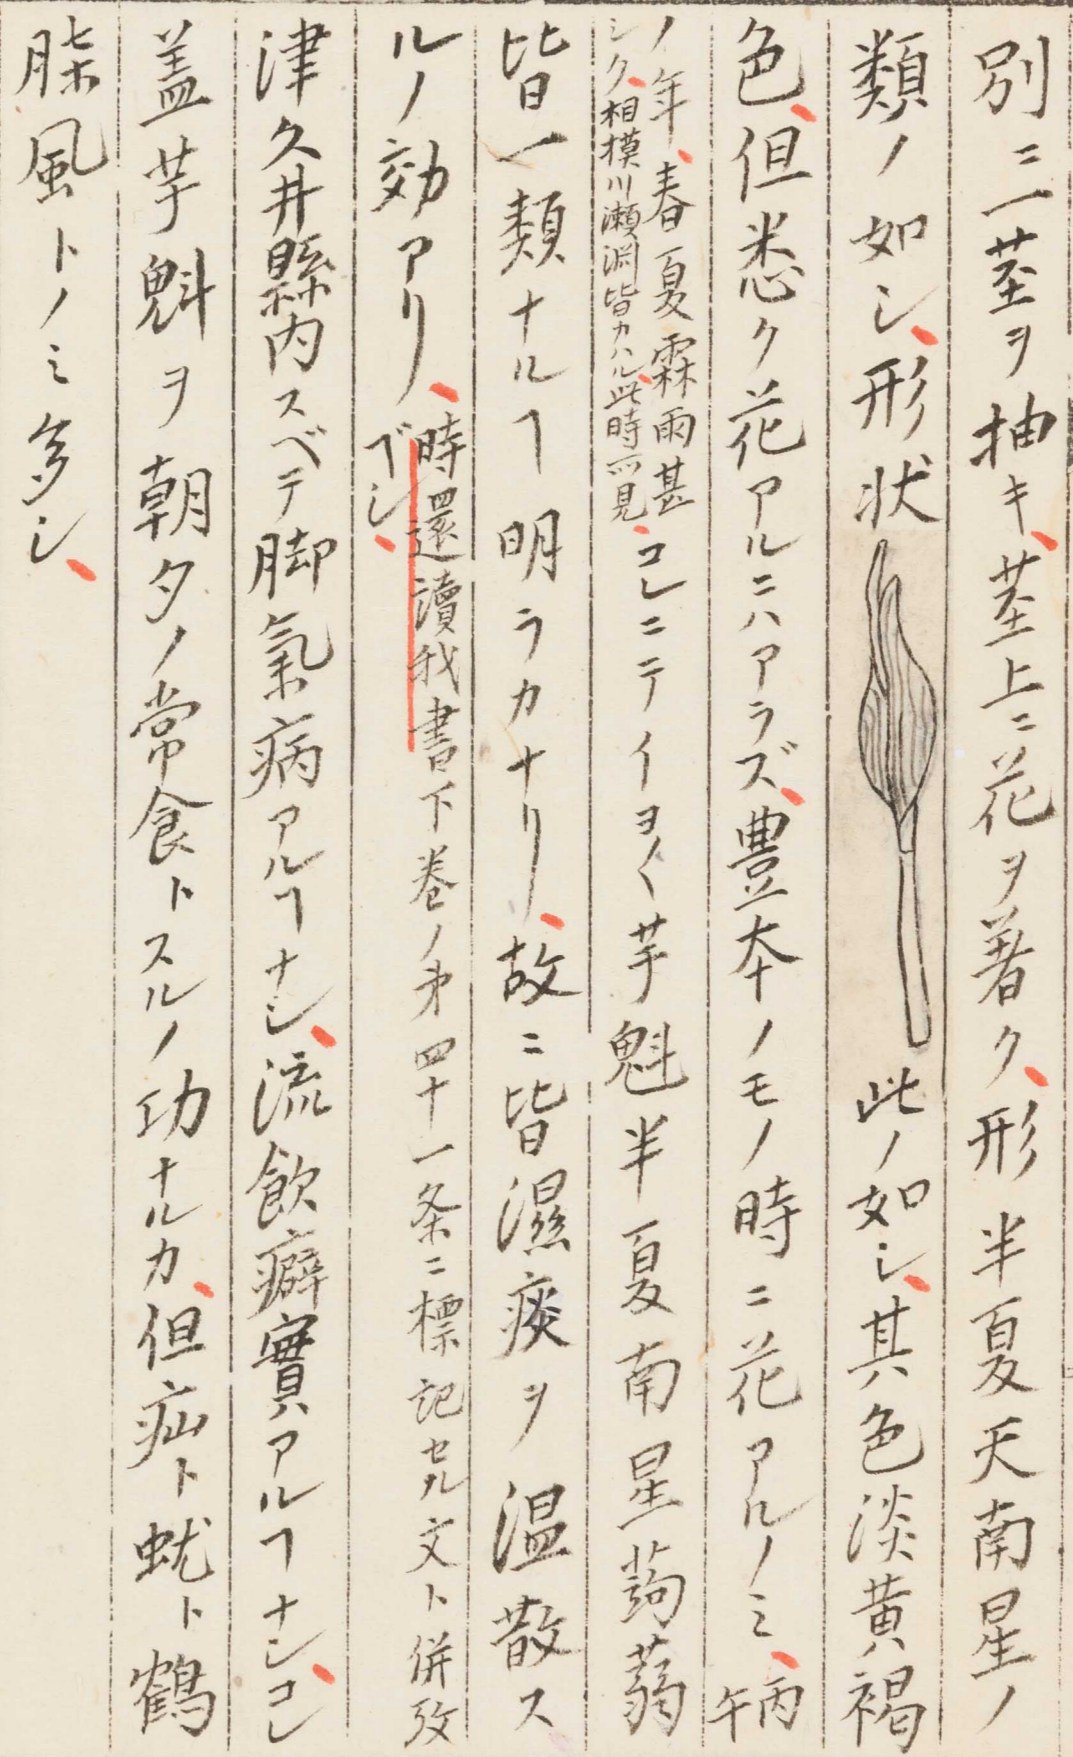 別ニ一茎ヲ抽キ、茎上ニ花ヲ著ク、形半夏天南星ノ
類ノ如シ、形状此ノ如シ、其色淡黄褐
色、但悉ク花アルニハアラズ、豊本ノモノ時ニ花アルノミ、丙午
ノ年、春夏霖雨甚
シク、相模川瀬淵皆カハル、此時一見、コレニテイヨ〱芋魁半夏南星蒟蒻
皆一類ナルヿ明ラカナリ、故ニ皆濕痰ヲ温散ス
ルノ効アリ、時還讀我書下巻ノ第四十一条ニ標記セル文ト併攷
ベシ、
津久井縣内スベテ脚氣病アルヿナシ、流飲癖實アルヿナシ、コレ
盖芋魁ヲ朝夕ノ常食トスルノ功ナルカ、但疝ト蚘ト鶴
膝風トノミ多シ、